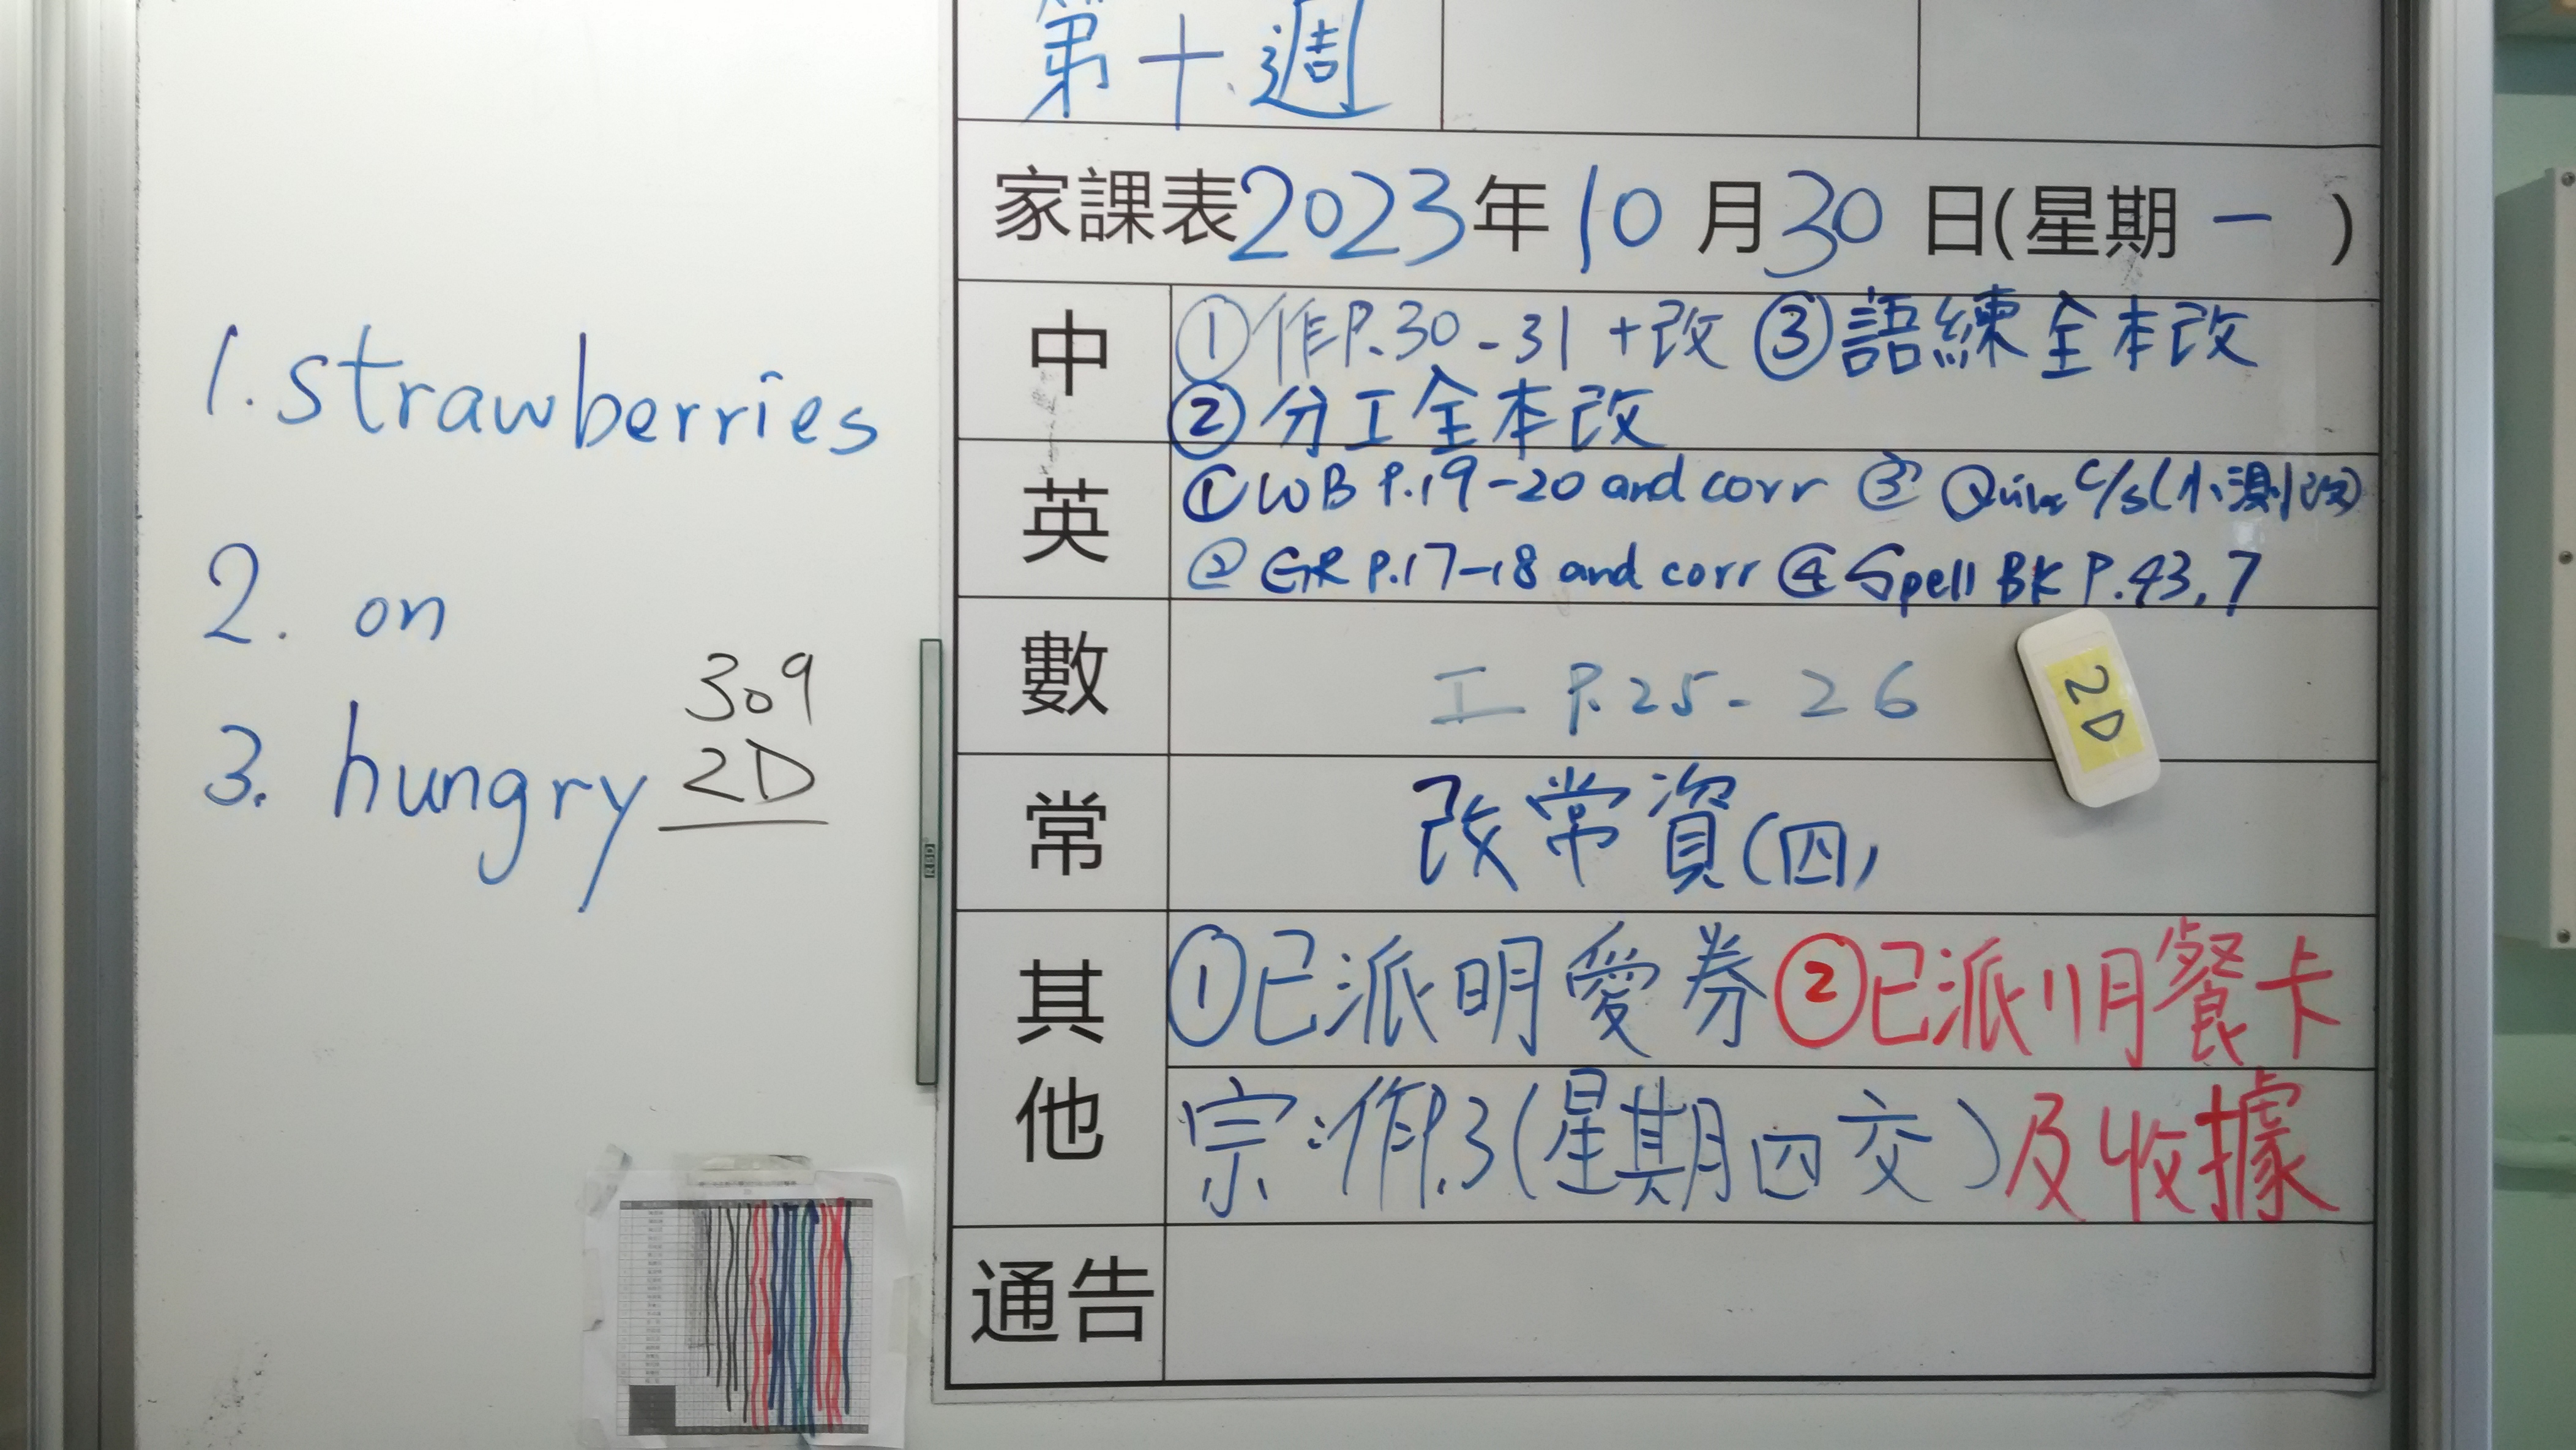 第十週
家課表2023年10月30日(星期一)
中
①作P.30-31+改 ③語練全本改
②分工全本改
英
①WB P.19-20 and corr ③ Quiz C/s(小測改)
②GR P.17-18 and corr ④Spell BK P.43,7
數
工 P.25-26
常
改常資(四)
其他
①已派明愛券②已派11月餐卡
宗:作P.3(星期四交)及收據
通告
1. strawberries
2. on
3. hungry
309
2D
2D